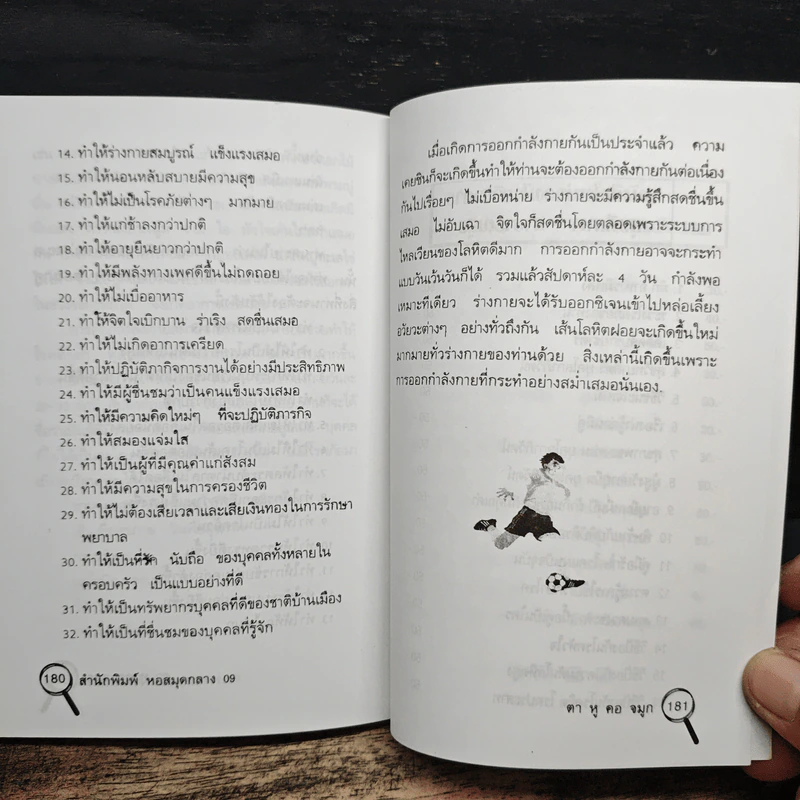 14. ทำให้ร่างกายสมบูรณ์ แข็งแรงเสมอ
15. ทำให้นอนหลับสบายมีความสุข
16. ทำให้ไม่เป็นโรคภัยต่างๆ มากมาย
17. ทำให้แก่ช้าลงกว่าปกติ
18. ทำให้อายุยืนยาวกว่าปกติ
19. ทำให้มีพลังทางเพศดีขึ้นไม่ถดถอย
20. ทำให้ไม่เบื่ออาหาร
21. ทำให้จิตใจเบิกบาน ร่าเริง สดชื่นเสมอ
22. ทำให้ไม่เกิดอาการเครียด
23. ทำให้ปฏิบัติภากิจการงานได้อย่างมีประสิทธิภาพ
24. ทำให้มีผู้ชื่นชมว่าเป็นคนแข็งแรงเสมอ
25. ทำให้มีความคิดใหม่ๆ ที่จะปฏิบัติภารกิจ
26. ทำให้สมองแจ่มใส
27. ทำให้เป็นผู้ที่มีคุณค่าแก่สังสม
28. ทำให้มีความสุขในการครองชีวิต
29. ทำให้ไม่ต้องเสียเวลาและเสียเงินทองในการรักษา
พยาบาล
30. ทำให้เป็นที่รัก นับถือ ของบุคคลทั้งหลายใน
ครอบครัว เป็นแบบอย่างที่ดี
31. ทำให้เป็นทรัพยากรบุคคลที่ดีของชาติบ้านเมือง
32. ทำให้เป็นที่ชื่นชมของบุคคลที่รู้จัก
180 สำนักพิมพ์ หอสมุดกลาง 09
เมื่อเกิดการออกกำลังกายกันเป็นประจำแล้ว ความ
เคยชินก็จะเกิดขึ้นทำให้ท่านจะต้องออกกำลังกายกันต่อเนื่อง
กันไปเรื่อยๆ ไม่เบื่อหน่าย ร่างกายจะมีความรู้สึกสดชื่นขึ้น
เสมอ ไม่อับเฉา จิตใจก็สดชื่นโดยตลอดเพราะระบบการ
ไหลเวียนของโลหิตดีมาก การออกกำลังกายอาจจะกระทำ
แบบวันเว้นวันก็ได้ รวมแล้วสัปดาห์ละ 4 วัน กำลังพอ
เหมาะทีเดียว ร่างกายจะได้รับออกซิเจนเข้าไปหล่อเลี้ยง
อวัยวะต่างๆ อย่างทั่วถึงกัน เส้นโลหิตฝอยจะเกิดขึ้นใหม่
มากมายทั่วร่างกายของท่านด้วย สิ่งเหล่านี้เกิดขึ้นเพราะ
การออกกำลังกายที่กระทำอย่างสม่ำเสมอนั่นเอง.
ตา หู คอ จมูก 181